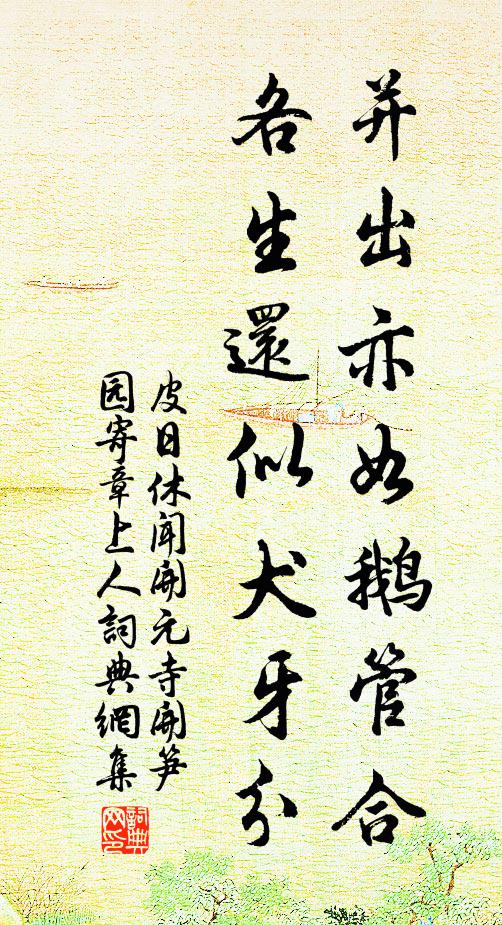 并出亦如鹅管合
各生還似犬牙分
皮日休闻開元寺開笋
园寄章上人詞典網集
詞典
网印